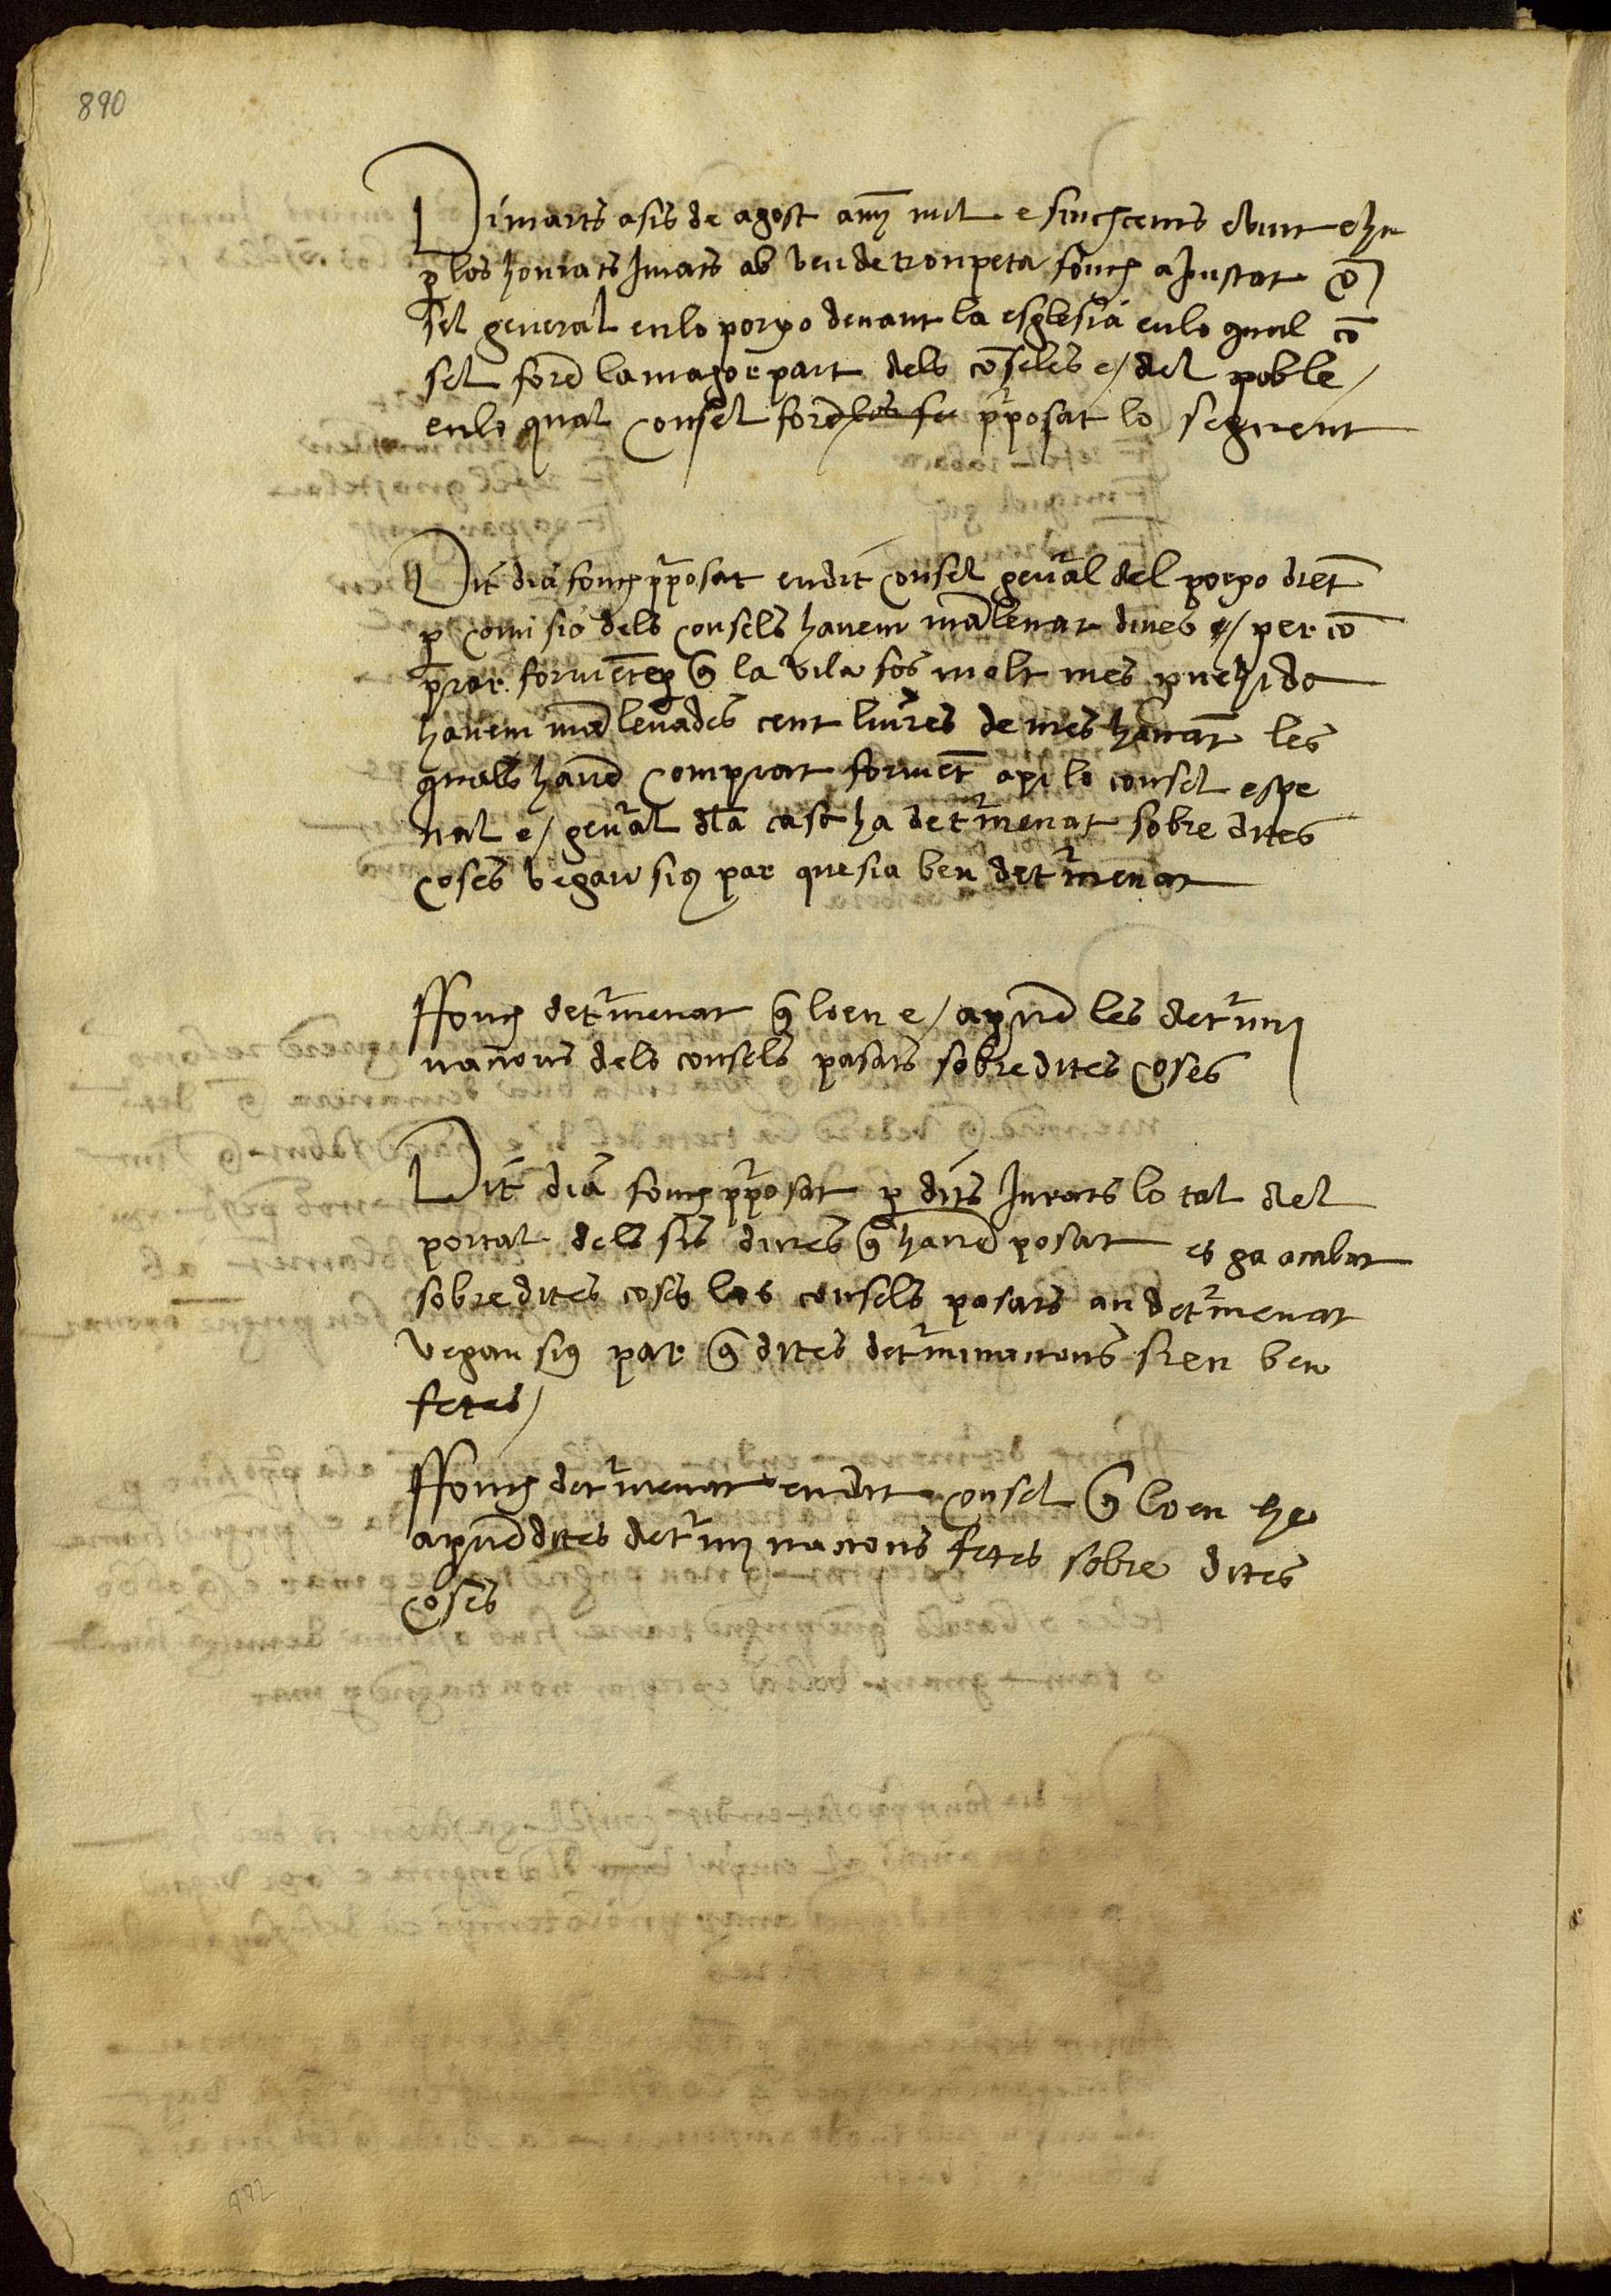 890
Dimarts a sis de agost any mil e sinchcents e vint e hu
p̱ los honrats Jurats ab veu de tronpeta fonch aJustat cõ
sel general en lo porxo devant la esglesia en lo qual cõ
sel forẽ la mayor part dels cõsels e/ del poble/
en lo qual consel forẽ los fo pposat lo seguent
Dit dia fonch pposat en dit consel geñal del porxo diẽt
p̱ comisio dels consels havem mãlevat dines e/ per cõ
prar formẽt e q̃ la vila fos molt mes provehida
havem mãlevades cent liures de mes hanat les
quals havẽ comprat formẽt axi lo consel espe
sial e/ geñal dla casa ha detͬmenat sobre dites
coses vegau sius par que sia ben detͬmenat
ffonch detͬmenat q̃ loen e/ aprovẽ les detͬmi
nacions dels consels pasats sobre dites coses
Dit dia fonch pposat p̱ dits Jurats lo tal del
portal dels sis dines q̃ havẽ posat es ga acabat
sobre dites coses los consels pasats an detͬmenat
vegau sius par q̃ dites detͬminacions sien ben
fetes/
ffonch detͬmenat en dit consel q̃ loen he
aprovẽ dites detͬminacions fetes sobre dites
coses